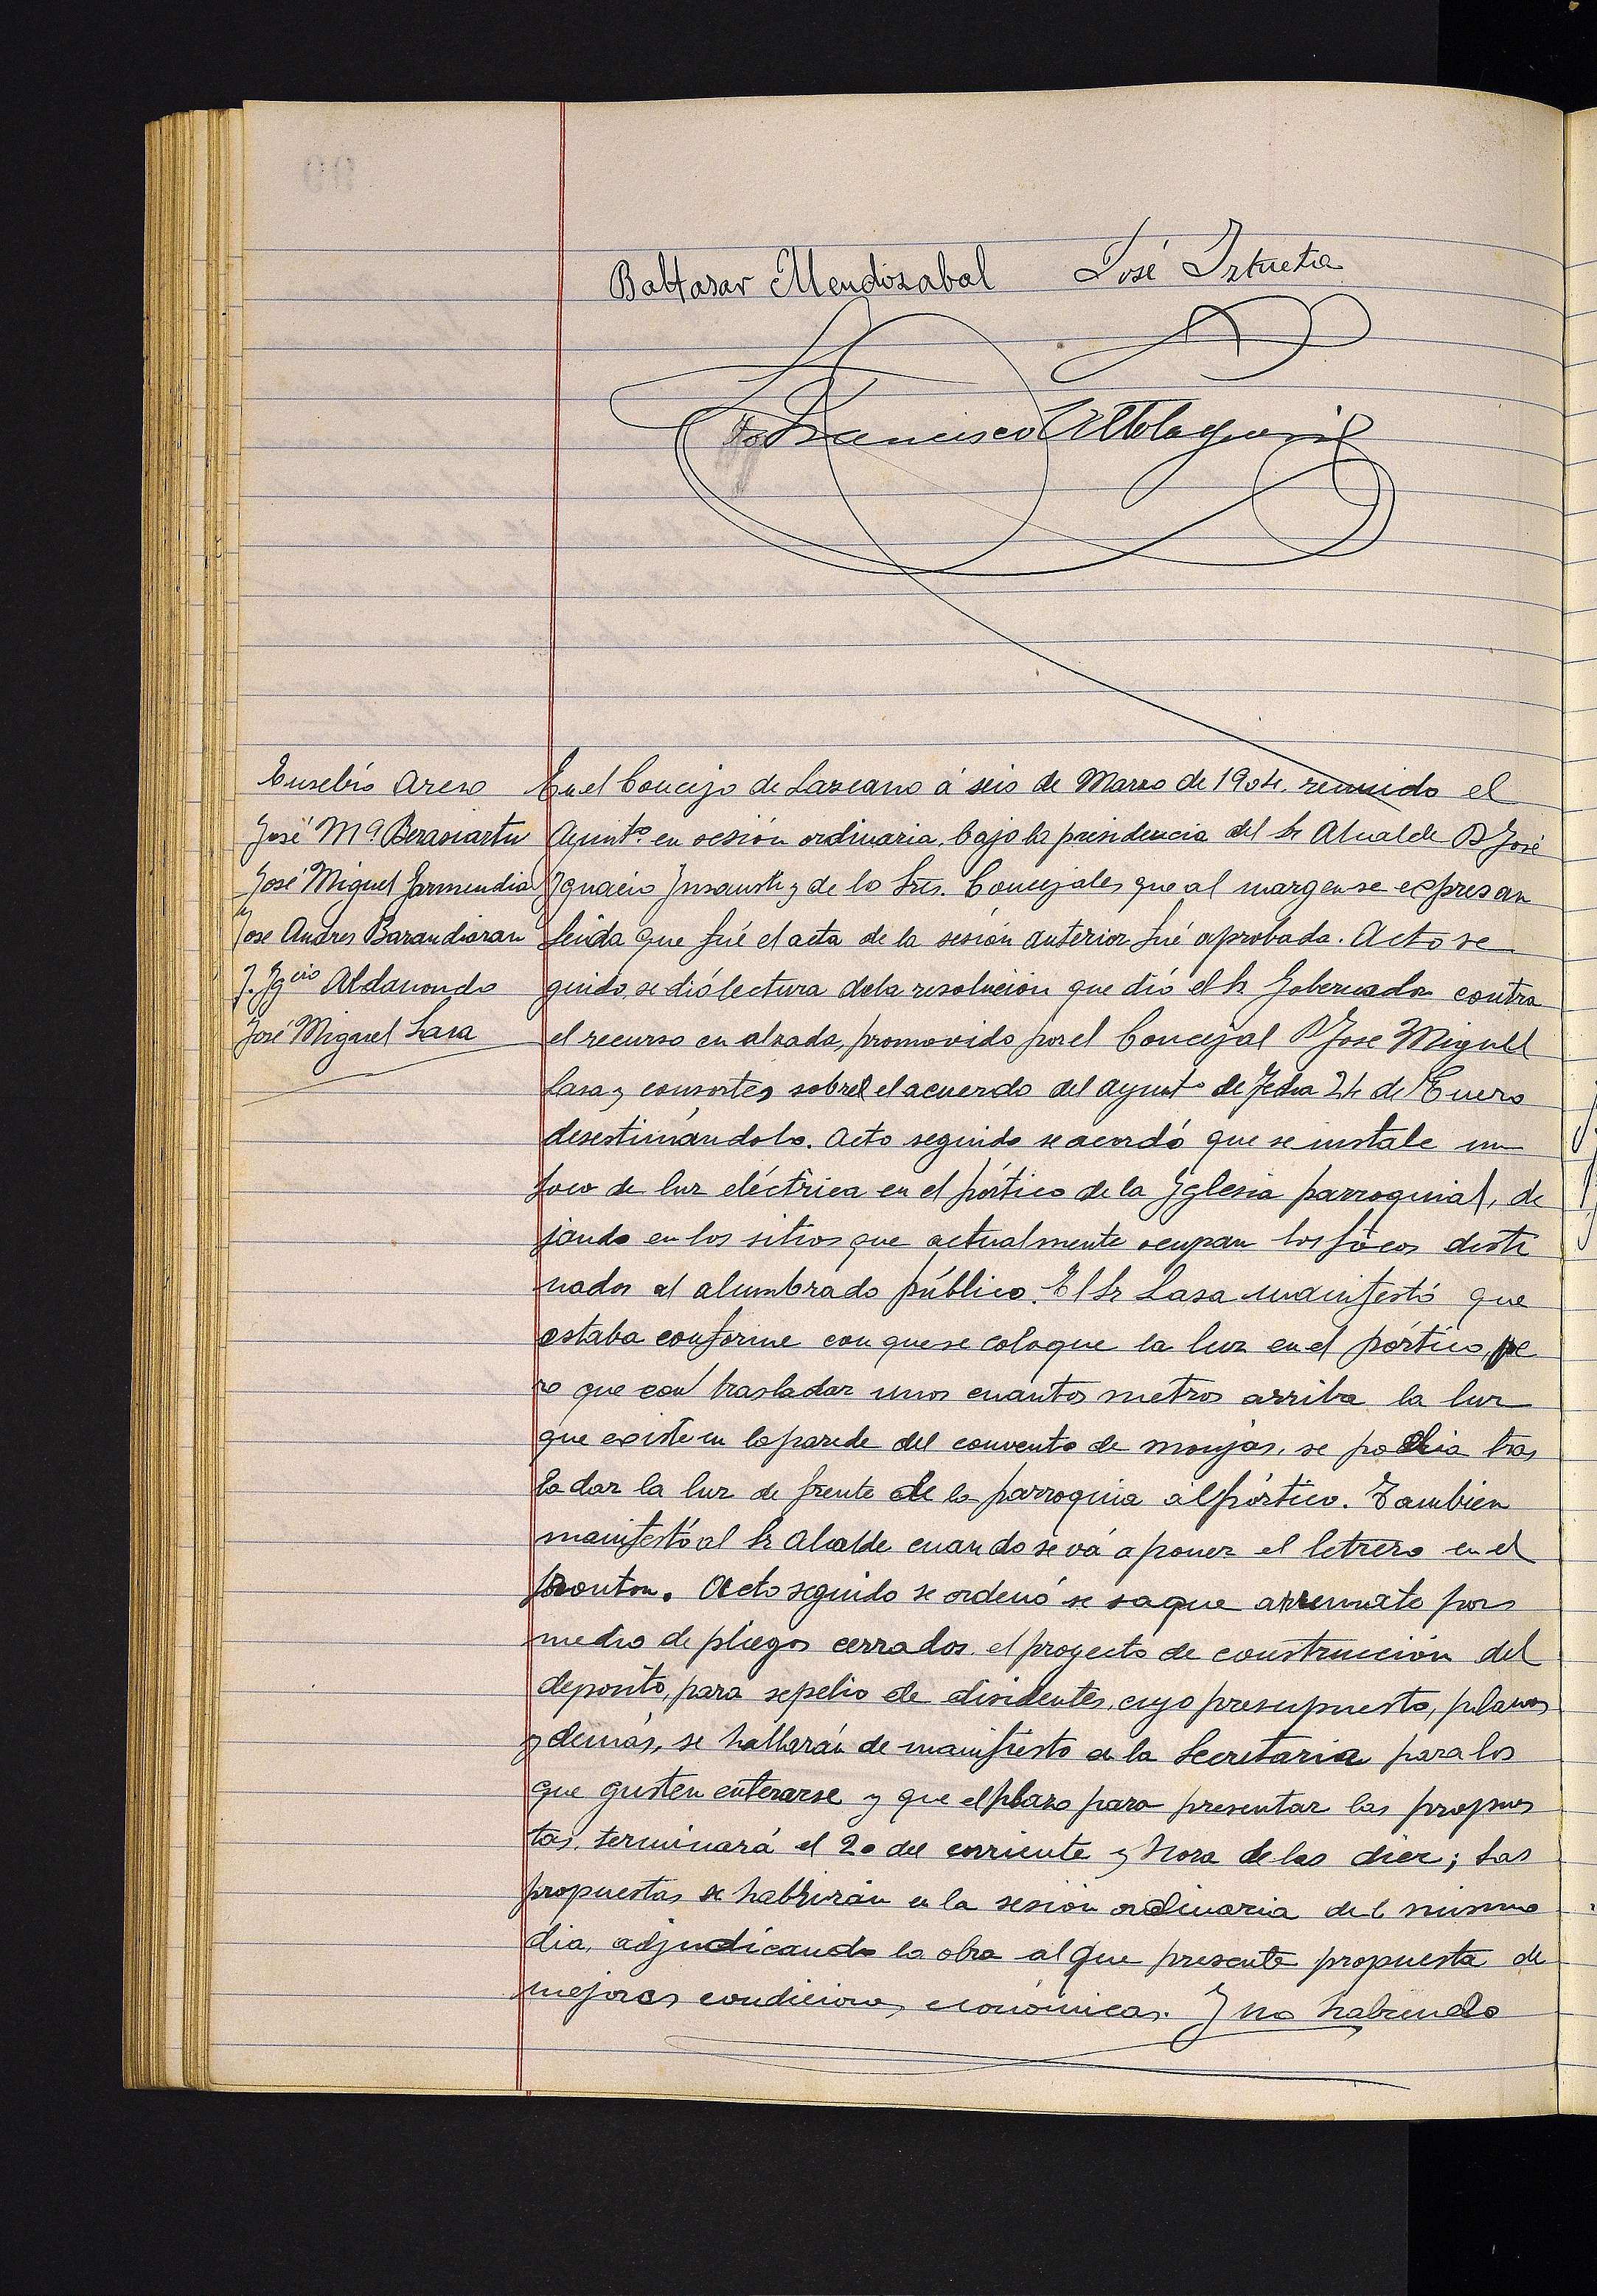 Baltasar Mendizabal José Iztueta
Francisco Altolaguirre
Eusebio Areso
José Mª Berasiartu
José Miguel Garmendia
Jose Andres Barandiaran
J. Igcio Aldanondo
José Miguel Lasa
En el Concejo de Lazcano á seis de Marzo de 1904. reunido el
Ayuntº en sesión ordinaria, bajo la presidencia del Sr Alcalde D José
Ignacio Insausti y de lo Sres. Concejales que al margen se expresan
leida que fué el acta de la sesión anterior fué aprobada. Acto se
guido, se dió lectura dela resolución que dió el Sr Gobernador contra
el recurso en alzada, promovido por el Concejal D Jose Miguel
Lasa y consortes sobre el acuerdo del ayuntº de fecha 24 de Enero
desestimándolo. Acto seguido se acordó que se instale un
foco de luz eléctrica en el pórtico de la Iglesia parroquial, de
jando en los sitios que actualmente ocupan los fócos desti
nados al alumbrado público. El Sr Lasa manifestó que
estaba conforme con que se coloque la luz en el pórtico, pe
ro que con trasladar unos cuantos metros arriba la luz
que existe en la parede del convento de monjas, se podria tras
ladar la luz de frente de la parroquia al pórtico. Tambien
manifestó al Sr Alcalde cuando se vá a poner el letrero en el
fronton. Acto seguido se ordenó se saque a remate por
medio de pliegos cerrados el proyecto de construcción del
deposito, para sepelio de disidentes, cuyo presupuesto, planos
y demás, se hallarán de manifiesto en la Secretaria para los
que gusten enterarse y que el plazo para presentar las propues
tas, terminará el 20 del corriente y hora de las diez; las
propuestas se habrirán en la sesion ordinaria del mismo
dia, adjudicando la obra al que presente propuesta de
mejores condiciones económicas. Y no habiendo